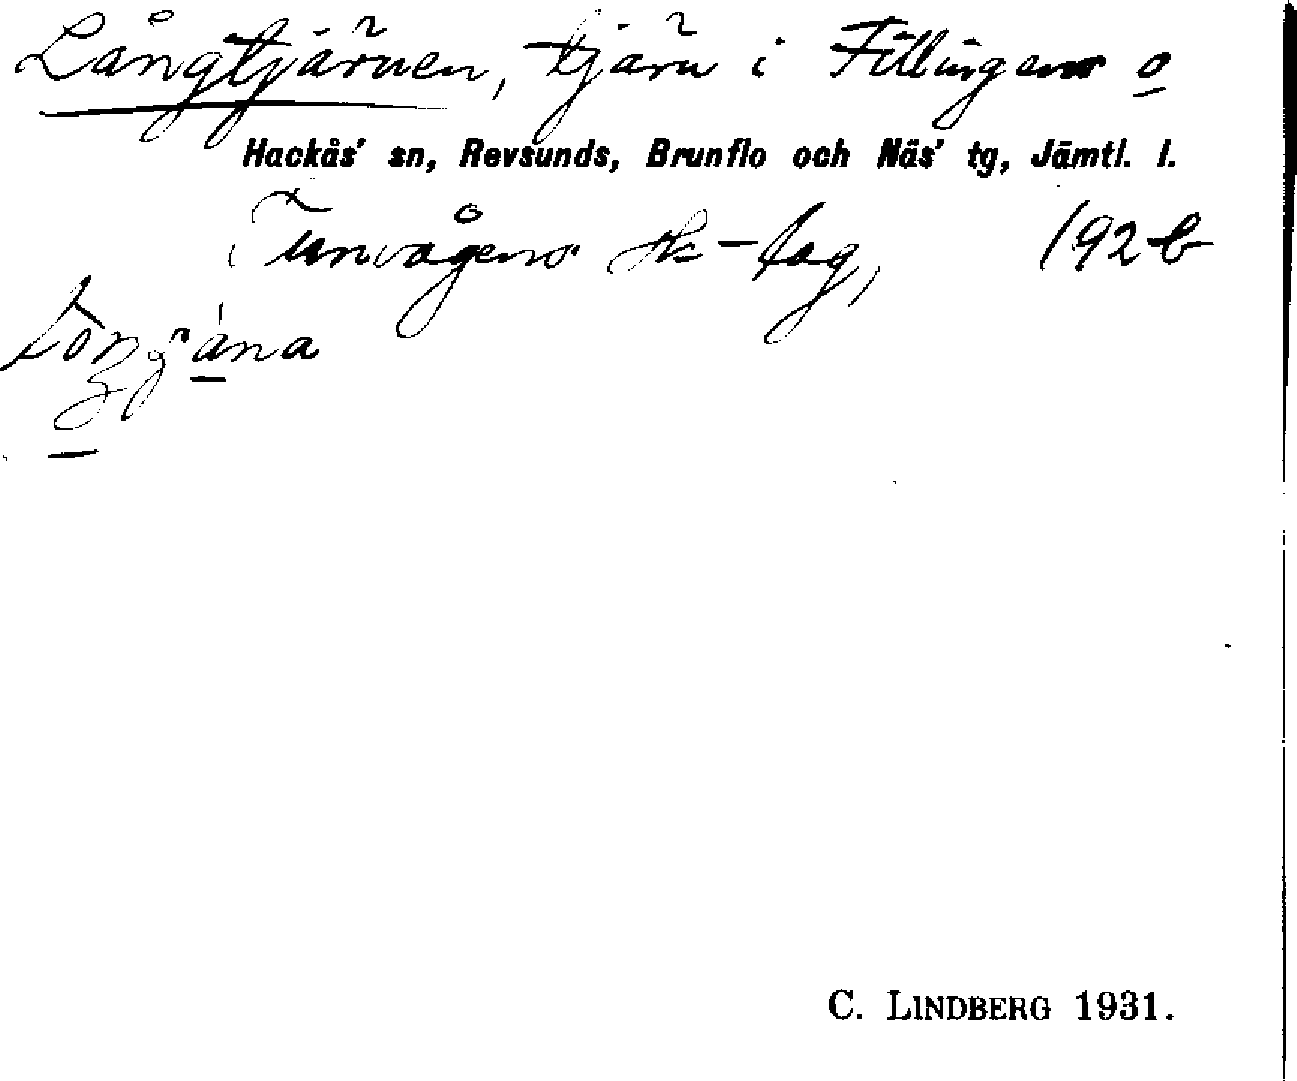 Långtjärnen, tjärn i Fillingens o
Hackås' sn, Revsunds, Brunflo och Näs' tg, Jämtl. l.
Tunvågens sk-lag, 192b
C. LINDBERG 1931.